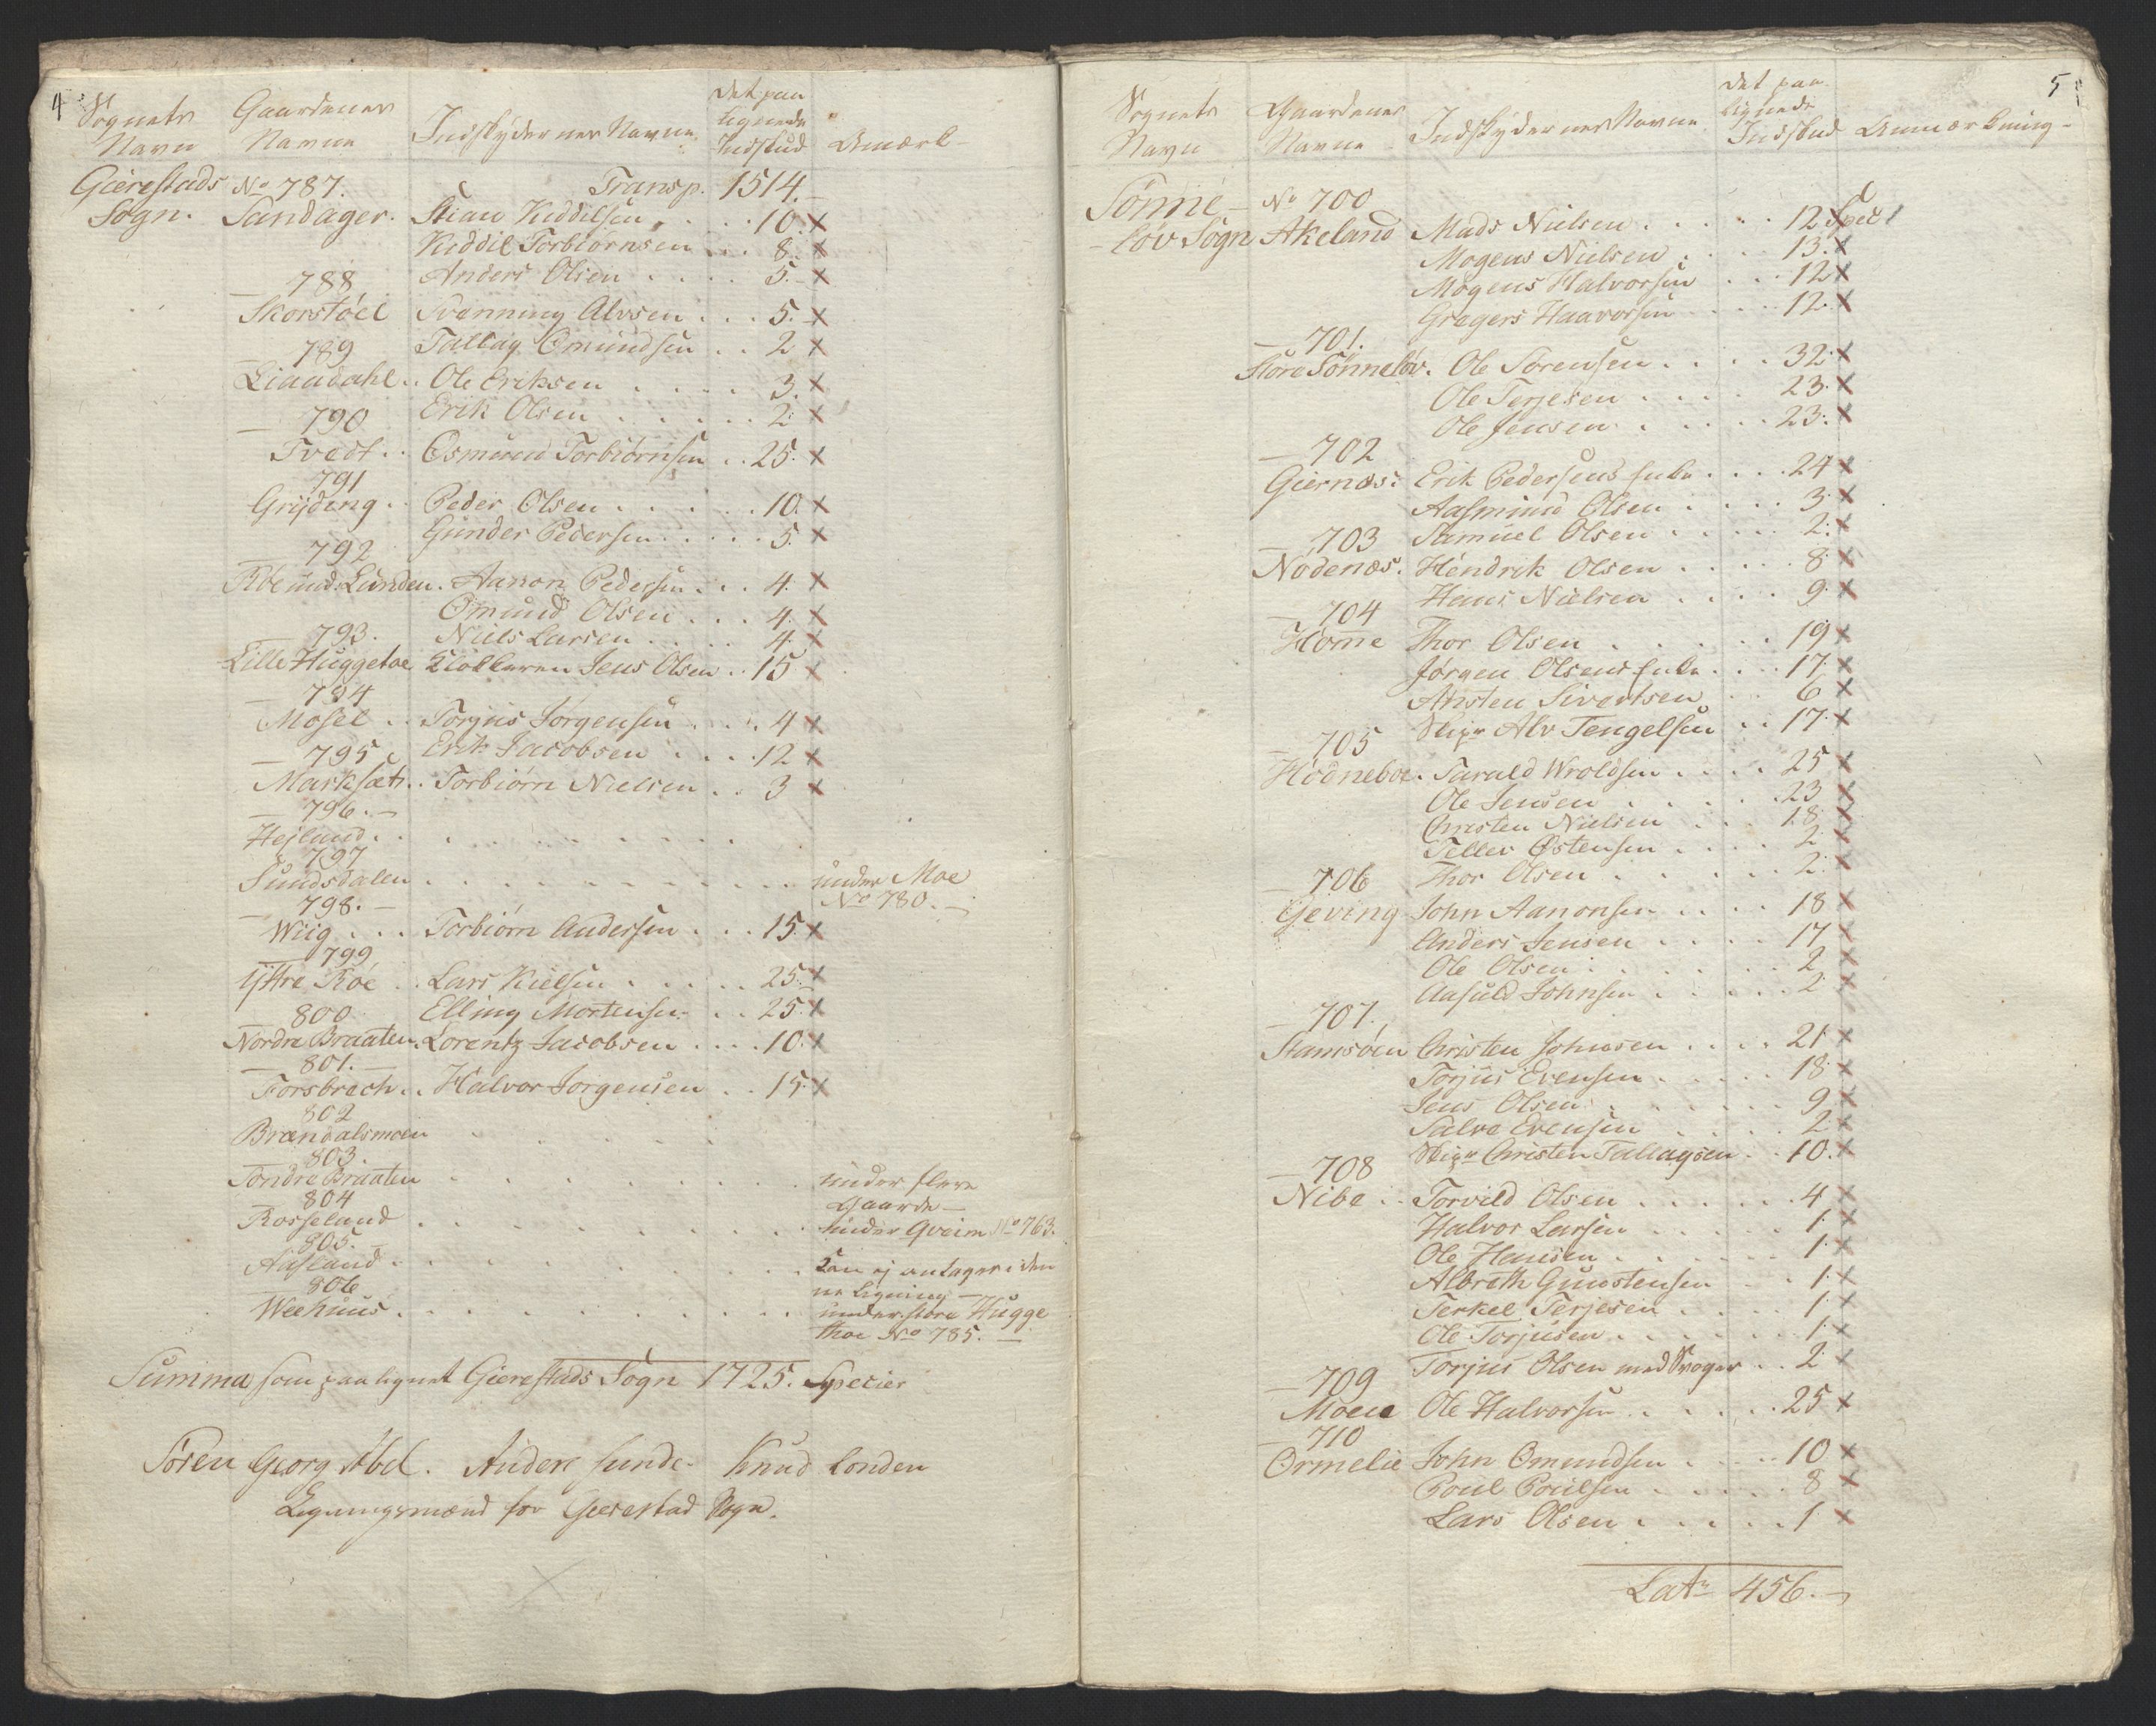 4
Sognets Navn
Gaardenes Navne
Indskydernes Navne
Det paa lignede Indskud
Anmærk-
Gierestads Sogn.
No 787. Transp. 1514.
Sandager. Stian Kiddilsen . . 10. x
Kiddil Torbiörnsen . . . 8. x
Anders Olsen . . . . 5. x
788
Skorstöel Svenning Alvsen . . . 5. x
Tallag Omundsen . . 2 x
789
Liaadahl . . Ole Eriksen . . . . 3. x
Erik Olsen . . . . . 2 x
790
Tvedt . . Osmund Torbiörnsen . . 25. x
791
Grÿding . . Peder Olsen . . . . . 10. x
Gunder Pedersen . . . . 5. x
792
Röe und. Lunden . Aanon Pedersen . . . 4. x
Omund Olsen . . . 4. x
Niels Larsen . . . 4. x
793.
Lille Huggetoe Klokkeren Jens Olsen . . 15 x
794
Mosel . . Torjus Jörgensen . . . 4 x
Erik Jacobsen . . . 12 x
795
Marksæt . . Torbiörn Nielsen . . 3 x
796. –
Hejland . . . . . . . .
797
Sundsdalen . . . . . . . . . under Moe
No 780. –
798. –
Wiig . . . Torbiörn Andersen . . . 15. x
799
Yttre Röe . . Lars Kielsen . . . . . 25. x
Elling Mortensen . . 25. x
800
Nordre Braaten . Lorentz Jacobsen . . . . 10. x
801. –
Forsbræch . . Halvor Jorgensen . . 15. x
802
Brændalsmoen . . . . . .
803.
Söndre Braaten . . . . . . . . under flere
Gaarde –
804
Rosseland . . . . . . . . . under Qveim No 763.
805. –
Aasland . . . . . . . . . Kan ej antages i den
ne Ligning –
806
Weehuus . . . . . . . . . under store Hugge
thoe No 785. –
Summa som paalignet Gierestads Sogn 1725. Specier
Sören Georg Abel. Anders Sunde. Knud Londen
Ligningsmænd for Gierestad Sogn.
5
Sognets Navn
Gaardenes Navne
Indskydernes Navne
Det paa lignede Indskud
Anmærkning-
Sönne – löv Sogn
No 700
Akeland Mads Nielsen . . . . . 12 Spec
Mogens Nielsen . . . . 13. x
Mogens Halvorsen . . 12 x
Gregers Haavorsen . . . . 12. x
701.
Store Sönneløv . Ole Sörensen . . . . 32. x
Ole Terjesen . . . . 23. x
Ole Jensen . . . . . 23. x
702
Giernæs : Erik Pedersens Enke . . . . 24 x
Aasmund Olsen . . . . 3. x
Samuel Olsen . . . . . 2. x
703
Nödenæs . Hendrik Olsen . . . . . 8. x
Hans Nielsen . . . . 9. x
704
Home Thor Olsen . . . . . . 19 x
Jörgen Olsens Enke . . . 17. x
Ansten Sivertsen . . 6 x
Alv Tengelsen . . 17. x
705
Hödneboe . Tarald Wroldsen . . . . 25 x
Ole Jensen . . . . . 23 x
Christen Nielsen . . . 18. x
Tellev Östensen . . . . 2 x
Thor Olsen . . . . . . 2. x
706
Geving John Aanonsen . . . . 18 x
Anders Jensen . . . . 17 x
Ole Olsen . . . . . . 2 x
Aasuld Johnsen . . . . . 2 x
707.
Stamsöen Christen Johnsen . . . . 21 x
Torjus Evensen . . . . . 18. x
Jens Olsen . . . . . . 9. x
Salve Evensen . . . . . 2 x
Christen Tallagsen . . 10. x
708
Nibe . . Torvild Olsen . . . . . . 4 x
Halvor Larsen . . . . . 1. x
Ole Hansen . . . . . . 1. x
Albreth Gunstensen . . . 1. x
Terkel Terjesen . . . . . 1. x
Ole Torjusen . . . . . . 1. x
Torjus Olsen med Svoger . . 2 x
709
Moene Ole Halvorsen . . . . . 25 x
710
Ormelie John Omundsen . . . . 10 x
Poul Poulsen . . . . . . 8 x
Lars Olsen . . . . . . 1 x
Latr 456. –